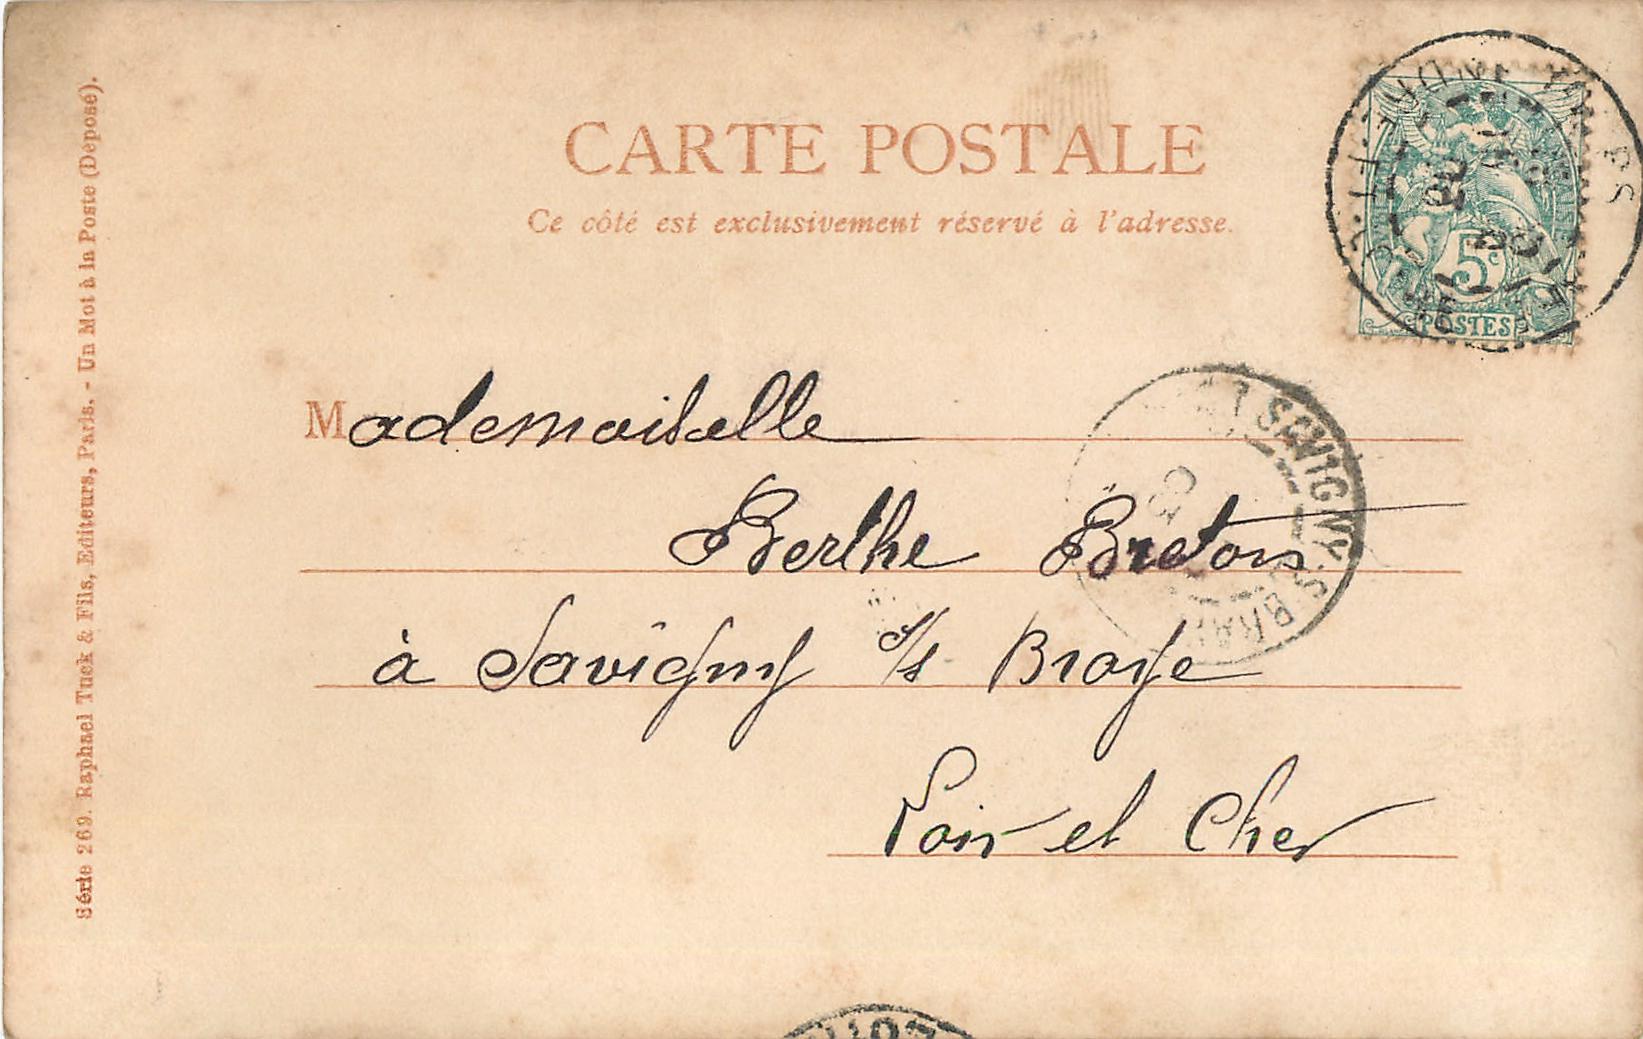 CARTE POSTALE
Ce côté est exclusivement réservé à l'adresse.
5c
POSTES
Mademoiselle
Berthe Breton
à Savigny s/s Braye
Loir et Cher
SAVIGNY-S-BRAYE
Série 269. Raphael Tuck & Fils, Editeurs, Paris. - Un Mot à la Poste (Déposé).